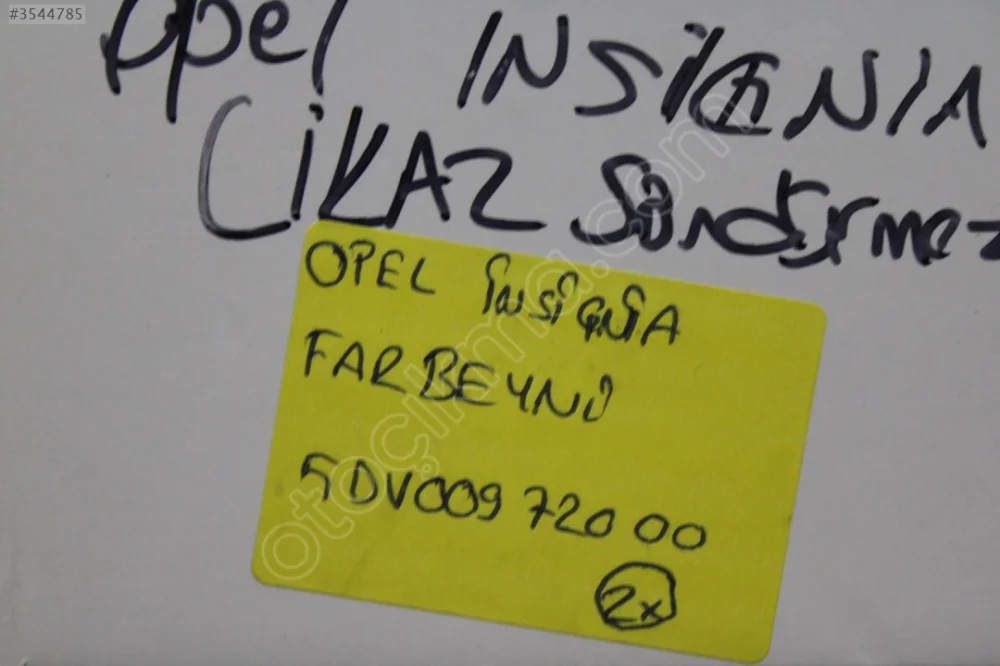 #3544785
Opel INSİGNIA
CİKAZ Söndürme
OPEL İNSİGNİA
FAR BEYNİ
5DV009 720 00
2x
otocikma.com